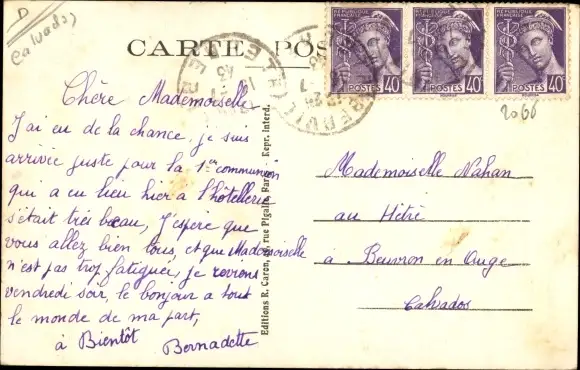 D
Calvados
CARTES POS
REPUBLIQUE FRANÇAISE
POSTES 40
REPUBLIQUE FRANÇAISE
POSTES 40
REPUBLIQUE FRANÇAISE
POSTES 40
2066
Chère Mademoiselle
J'ai eu de la chance, je suis
arrivée juste pour la 1ère communion
qui a eu lieu hier à l'hôtellerie
s'était très beau, J'espère que
vous allez bien tous, et que Mademoiselle
n'est pas trop fatiguée, je reviens
vendredi soir, le bonjour a tout
le monde de ma part,
à Bientôt
Bernadette
Editions R. Caron, Rue Pigalle, Paris. Repr. Interd.
Mademoiselle Nahan
au Hêtre
à Beuvron en Auge
Calvados